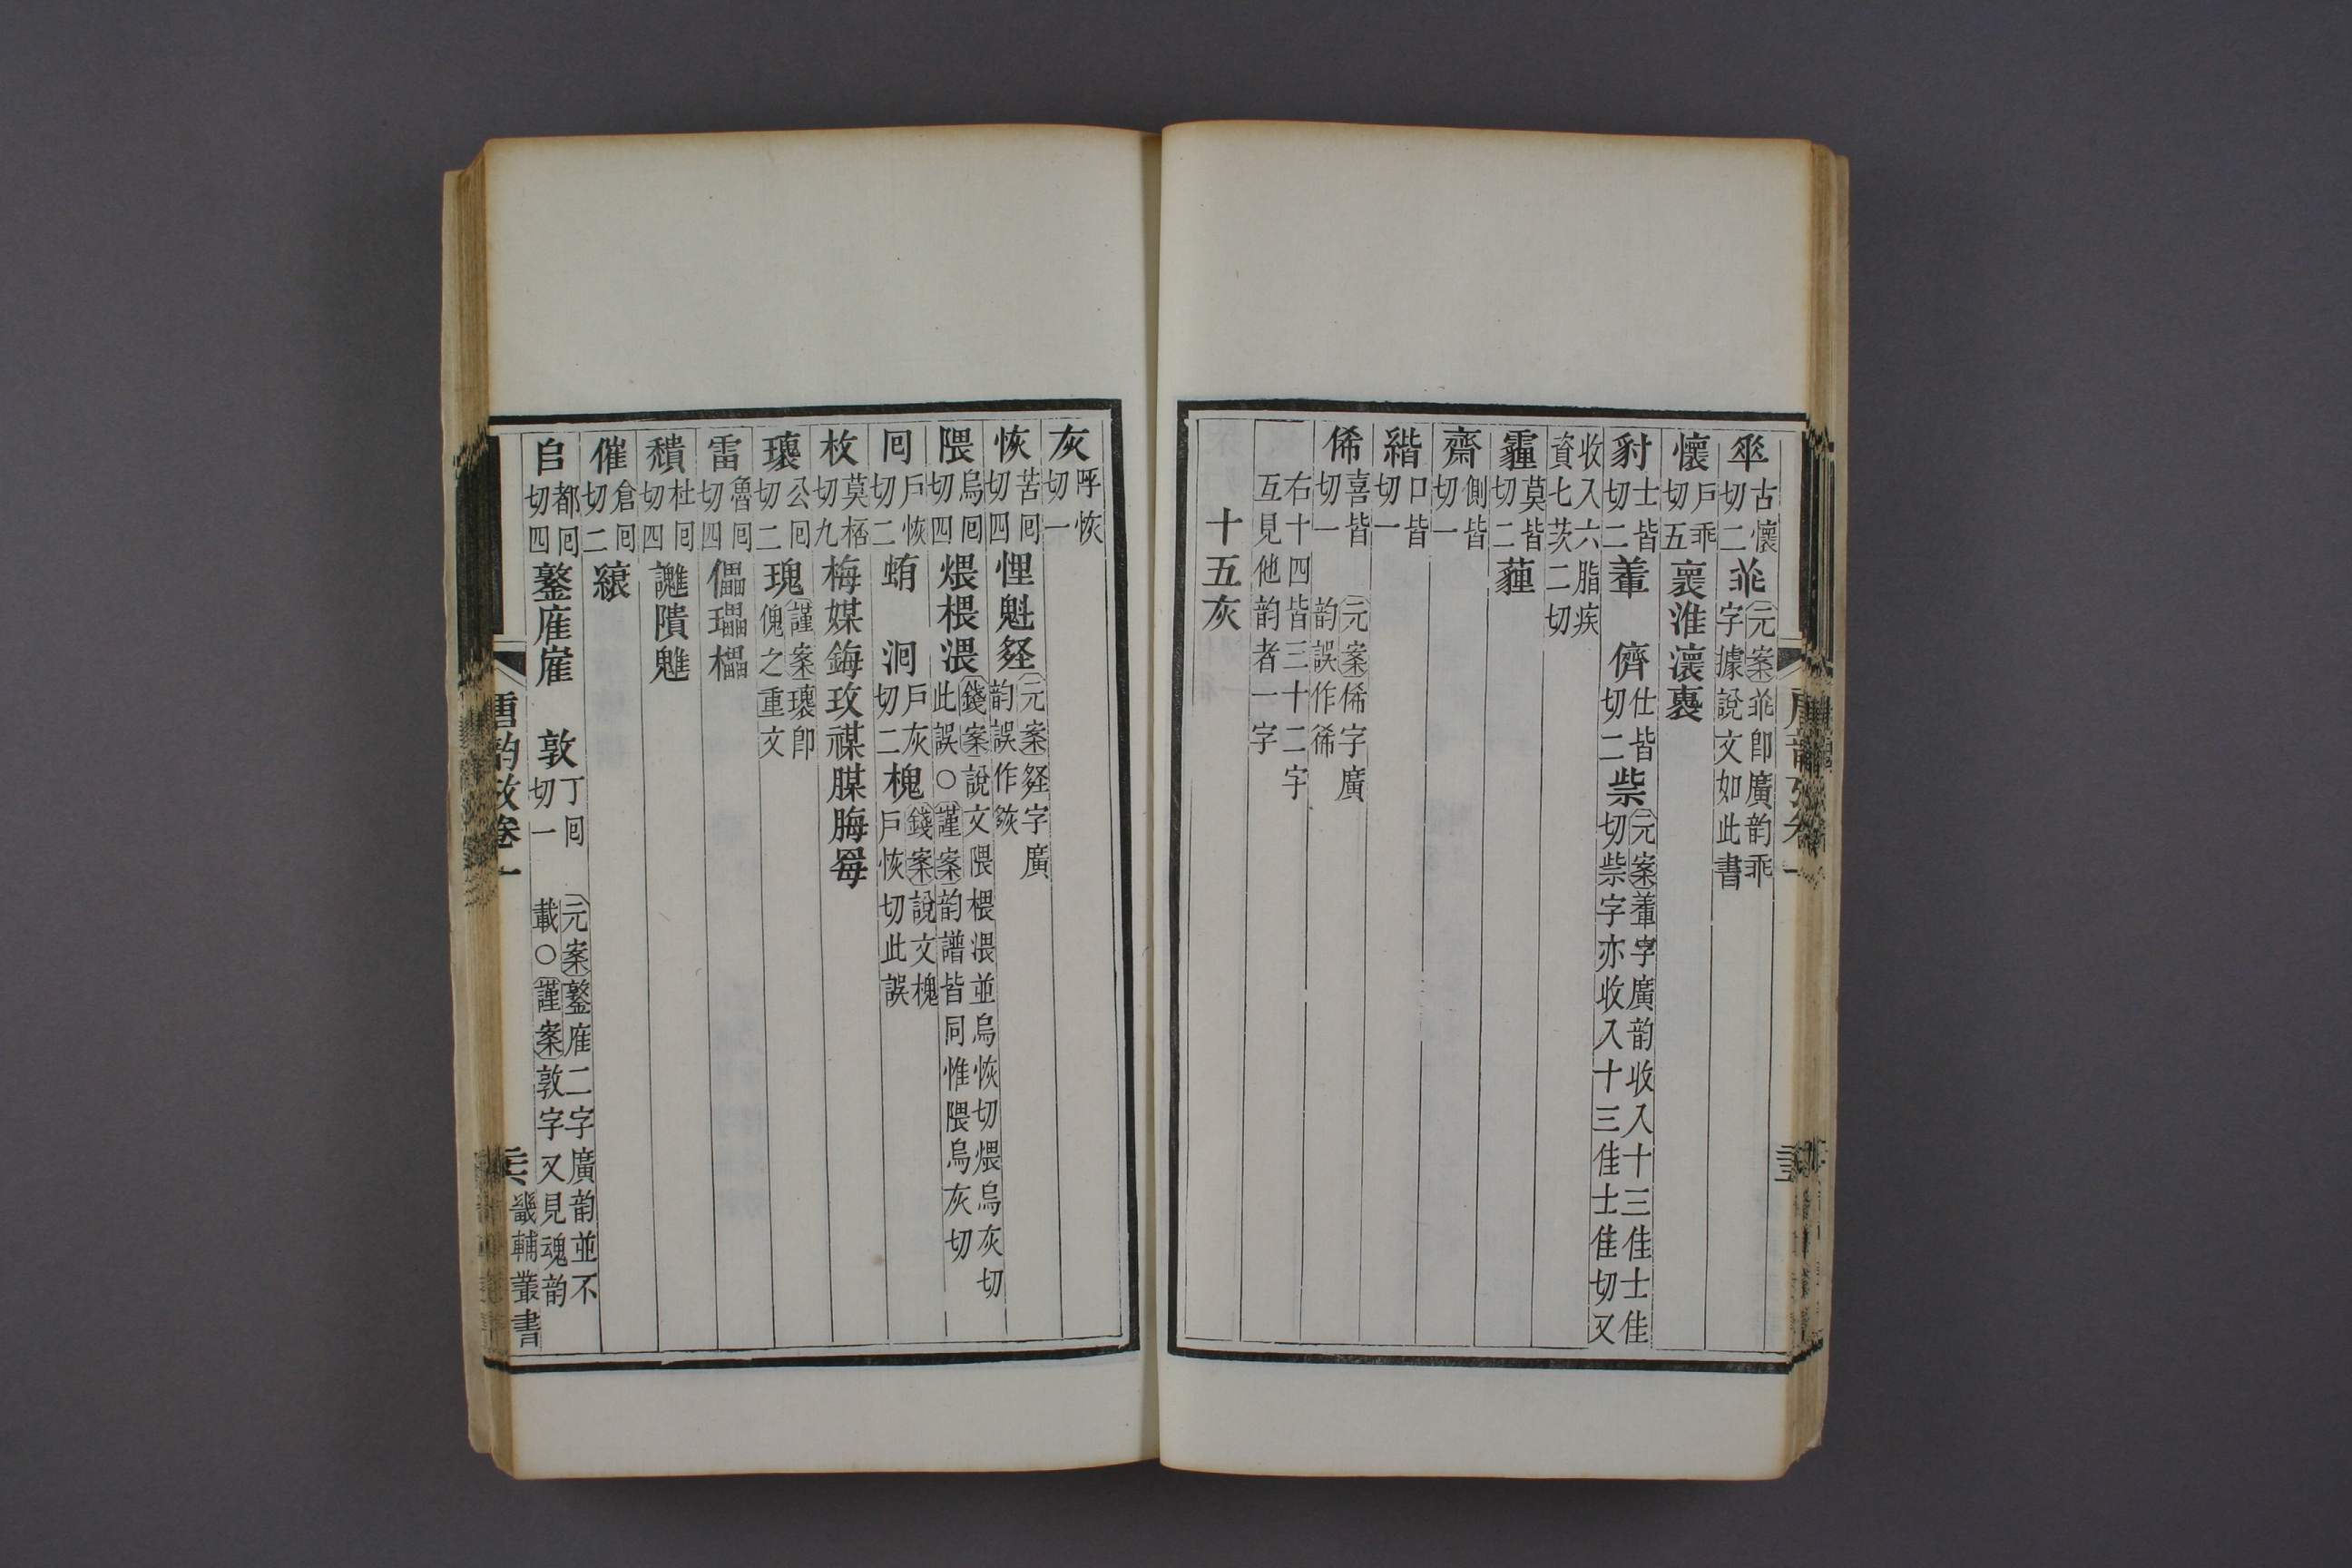 𠦬古懷切二𠁥元案𠁥即廣韵乖字據說文如此書
懷戶乖切五褱淮瀤裹
豺士皆切二䡨 儕仕皆切二祡元案䡨字廣韵收入十三佳士佳切祡字亦收入十三佳士佳切又
收入六脂疾資七茨二切
霾莫皆切二薶
齋側皆切一
緒口皆切一
俙喜皆切一 元案俙字廣韵誤作徥
右十四皆三十二字互見他韵者一字
十五灰
灰呼恢切一
恢苦囘切四悝魁𦀗元案𦀗字廣韵誤作䋿
隈烏囘切四煨椳渨錢案說文隈椳渨並烏恢切煨烏灰切此誤○謹案韵譜皆同惟隈烏灰切
囘戶恢切二蛕 洄戶灰切二槐錢案說文槐戶恢切此誤
枚莫桮切九梅媒鋂玫禖腜脢䍙
瓌公囘切二瑰謹案瓌卽傀之重文
雷魯囘切四儡瓃櫑
穨杜囘切四讄隤魋
催倉囘切二縗
𠂤都囘切四鐜雇崔 敦丁囘切一 元案鐜雇二字廣韵並不載○謹案敦字又見魂韵
唐韵攷卷一
畿輔叢書